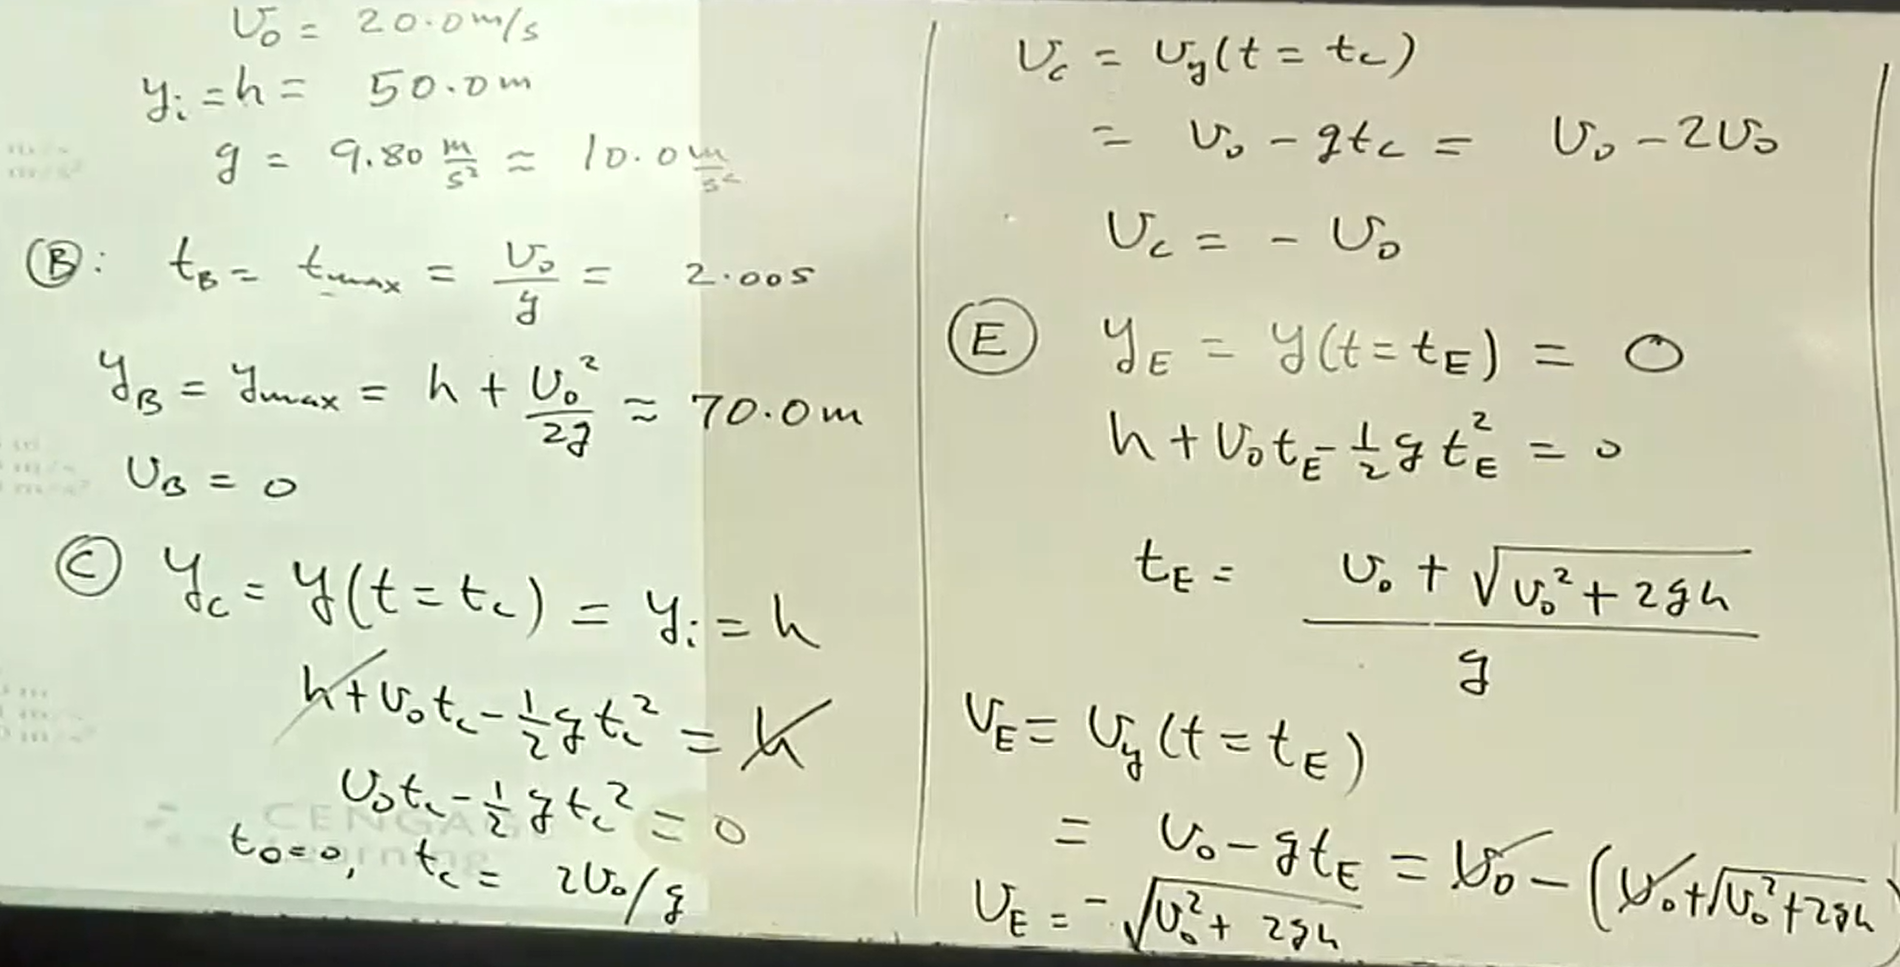 v₀ = 20.0 m/s
yᵢ = h = 50.0 m
g = 9.80 m/s² ≈ 10.0 m/s²
Ⓑ: t_B = t_max = v₀/g = 2.00s
y_B = y_max = h + v₀²/2g ≈ 70.0 m
v_B = 0
Ⓒ y_c = y(t = t_c) = yᵢ = h
h + v₀t_c - ½gt_c² = h
v₀t_c - ½gt_c² = 0
t₀ = 0, t_c = 2v₀/g
CENGAGE
Learning
v_c = v_y(t = t_c)
= v₀ - gt_c = v₀ - 2v₀
v_c = - v₀
Ⓔ y_E = y(t = t_E) = 0
h + v₀t_E - ½gt_E² = 0
t_E = (v₀ + √(v₀² + 2gh))/g
v_E = v_y(t = t_E)
= v₀ - gt_E = v₀ - (v₀ + √(v₀² + 2gh))
v_E = -√(v₀² + 2gh)